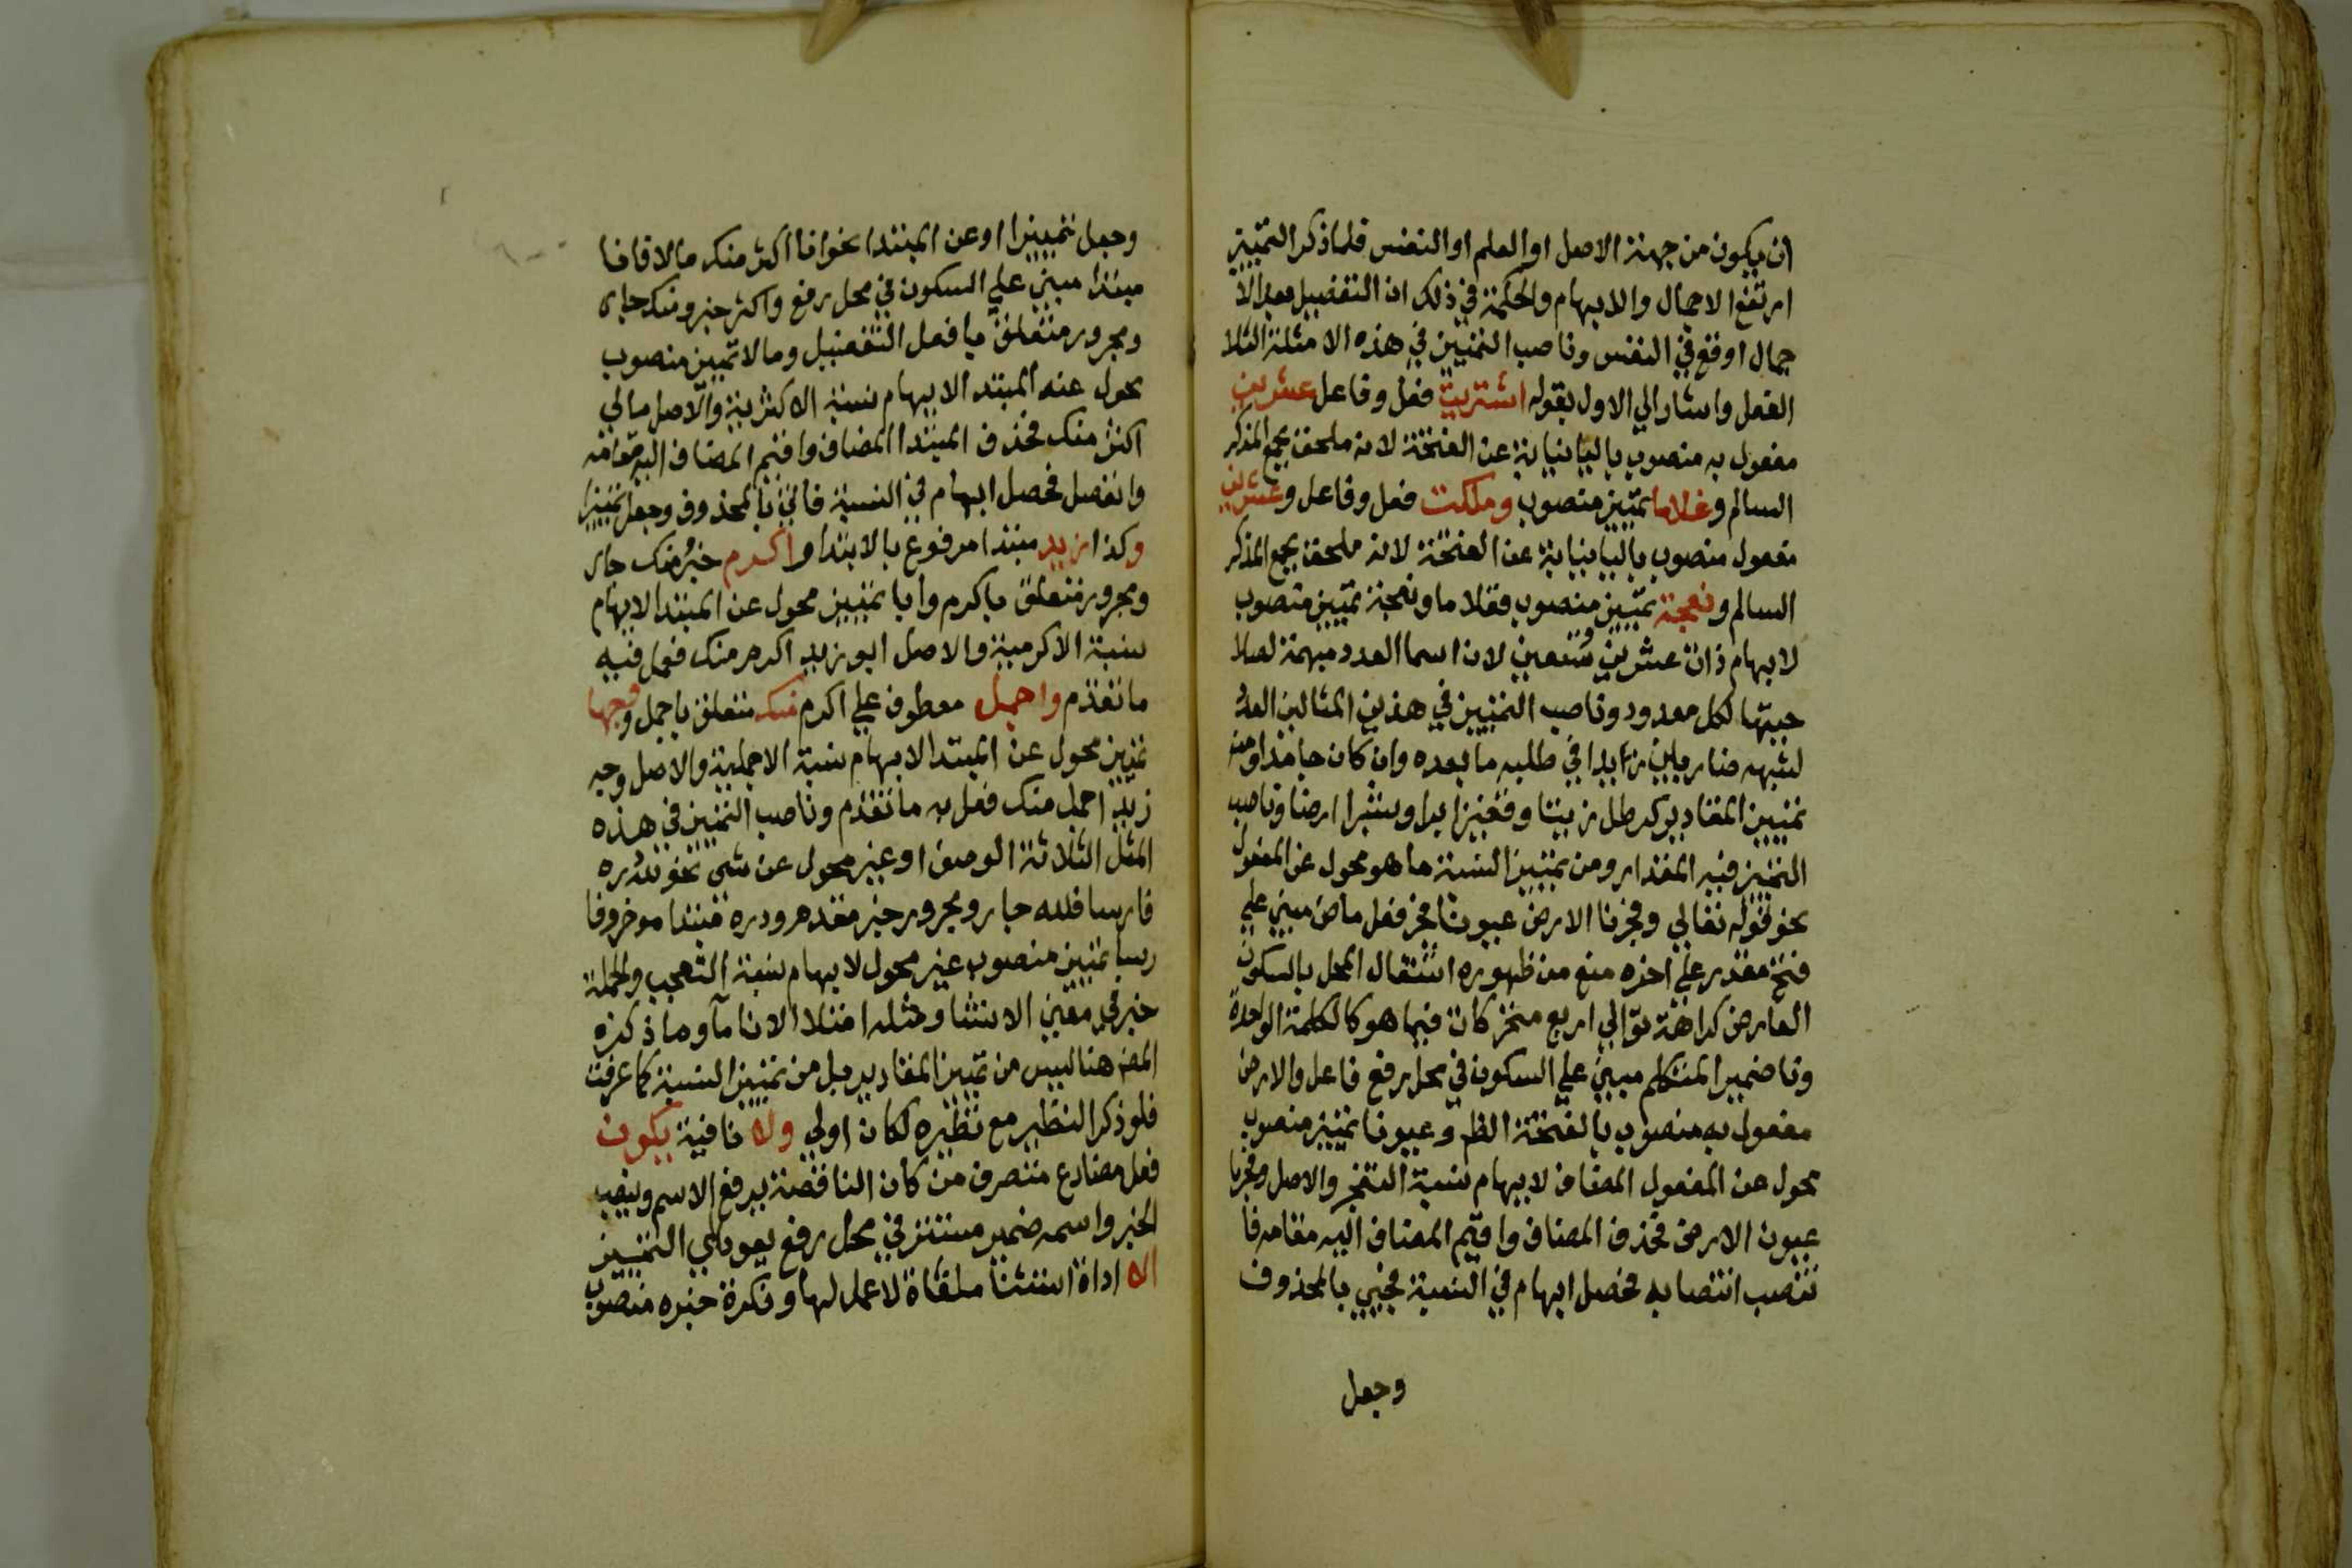 ان يكون من جهة الاصل او العلم او النفس فلما ذكر التمييز
ارتفع الاجمال والابهام والحكمة في ذلك ان التفصيل بعد الا
جمال اوقع في النفس وناصب التمييز في هذه الامثلة الثلا
الفعل واشار الي الاول بقوله اشتريت فعل وفاعل عشرين
مفعول به منصوب باليا نيابة عن الفتحة لانه ملحق بجمع المذكر
السالم وغلاما تمييز منصوب وملكت فعل وفاعل وعشرين
مفعول منصوب باليا نيابة عن الفتحة لانه ملحق بجمع المذكر
السالم ونعجة تمييز منصوب فغلاما ونعجة تمييز منصوب
لابهام ذات عشرين وتسعين لان اسما العدد مبهمة لصلا
حيتها لكل معدود وناصب التمييز في هذين المثالين العدد
لشبهه ضاربين زيدا في طلبه ما بعده وان كان جامدا ومن
تمييز المقادير كرطل زيتا وقفيز برا وشبر ارضا وناصب
التمييز فيه المقدار ومن تمييز النسبة ما هو محول عن المفعول
نحو قوله تعالي وفجرنا الارض عيونا فجر فعل ماض مبني علي
فتح مقدر علي اخره منع من ظهوره اشتغال المحل بالسكون
العارض كراهة توالي اربع متحركات فيما هو كالكلمة الواحدة
ونا ضمير المتكلم مبني علي السكون في محل رفع فاعل والارض
مفعول به منصوب بالفتحة الظ وعيونا تمييز منصوب
محول عن المفعول المضاف لابهام نسبة التفجر والاصل وفجرنا
عيون الارض فحذف المضاف واقيم المضاف اليه مقامه فا
نتصب انتصابه فحصل ابهام في النسبة فجيي بالمحذوف
وجعل
وجعل تمييزا او عن المبتدا نحو انا اكثر منك مالا فانا
مبتدا مبني علي السكون في محل رفع واكثر خبر ومنك جار
ومجرور متعلق بافعل التفضيل ومالا تمييز منصوب
محول عنه المبتد الابهام نسبة الاكثرية والاصل مالي
اكثر منك فحذف المبتدا المضاف واقيم المضاف اليه مقامه
وانفصل فحصل ابهام في النسبة فاتي بالمحذوف وجعل تمييزا
وكذا زيد مبتدا مرفوع بالابتدا واكرم خبر منك جار
ومجرور متعلق باكرم وابا تمييز محول عن المبتدا لابهام
نسبة الاكرمية والاصل ابو زيد اكرم منك فعمل فيه
ما تقدم واجمل معطوف علي اكرم منك متعلق باجمل ووجها
تمييز محول عن المبتدا لابهام نسبة الاجملية والاصل وجه
زيد اجمل منك فعل به ما تقدم وناصب التمييز في هذه
المثل الثلاثة الوصف او غير محول عن شي نحو لله دره
فارسا فلله جار ومجرور خبر مقدم ودره مبتدا موخر وفا
رسا تمييز منصوب غير محول لابهام نسبة التعجب والجملة
خبر في معني الانشا ومثله امتلا الانا مآ وما ذكره
المص هنا ليس من تمييز المقادير بل من تمييز النسبة كما عرفت
فلو ذكر النظير مع نظيره لكان اولي ولا نافية يكون
فعل مضارع متصرف من كان الناقصة يرفع الاسم وينصب
الخبر واسمه ضمير مستتر في محل رفع يعود الي التمييز
الا اداة استثنا ملغاة لا عمل لها ونكرة خبره منصوب